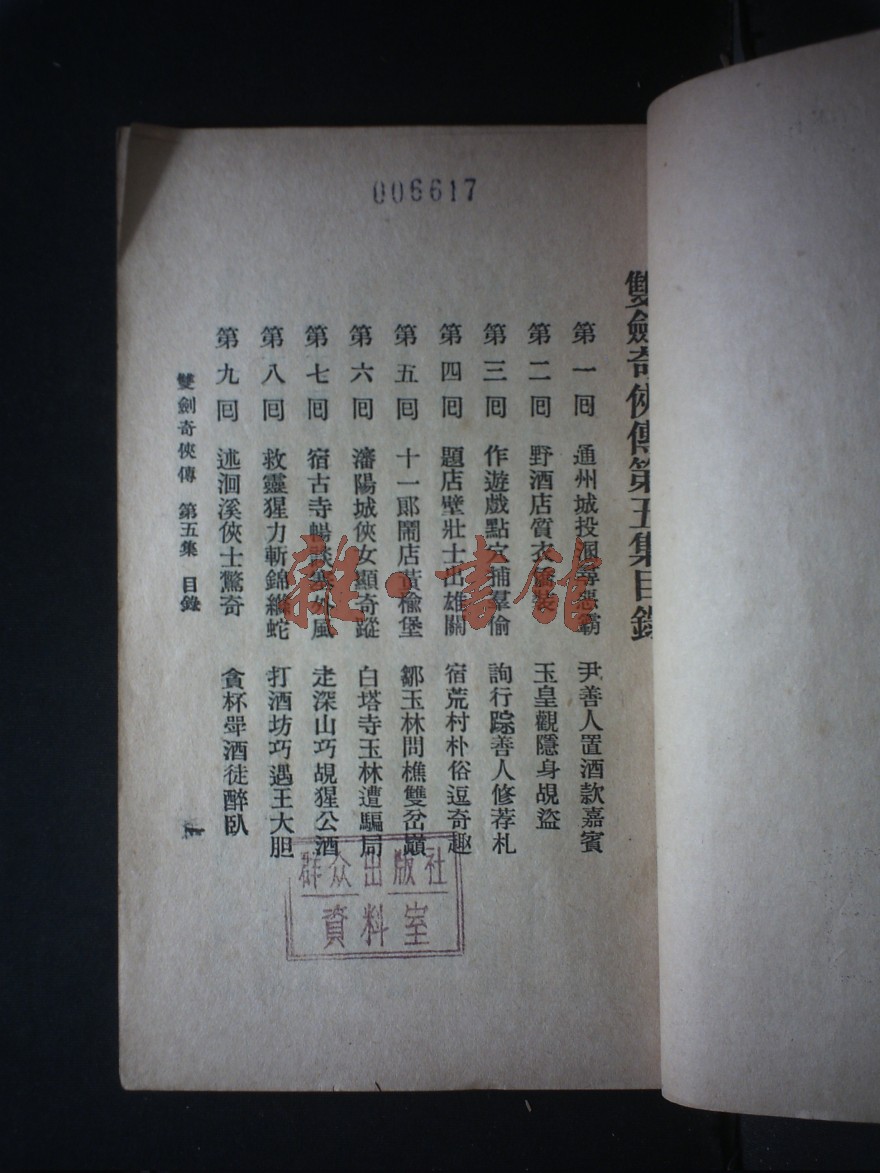 006617
雙劍奇俠傳第五集目錄
第一回 通州城投㴲尋惡霸 尹善人置酒款嘉賓
第二回 野酒店質衣 裝 玉皇觀隱身覘盜
第三回 作遊戲點穴捕羣偷 詢行踪善人修荐札
第四回 題店壁壯士出雄關 宿荒村朴俗逗奇趣
第五回 十一郞鬧店黃楡堡 鄒玉林問樵雙岔嶺
第六回 瀋陽城俠女顯奇蹤 白塔寺玉林遭騙局
第七回 宿古寺暢談塞外風 走深山巧覘猩公酒
第八回 救靈猩力斬錦 蛇 打酒坊巧遇王大胆
第九回 述洄溪俠士驚奇 貪杯斝酒徒醉臥
雙劍奇俠傳 第五集 目錄
一
雜·書館
群众出版社
資料室